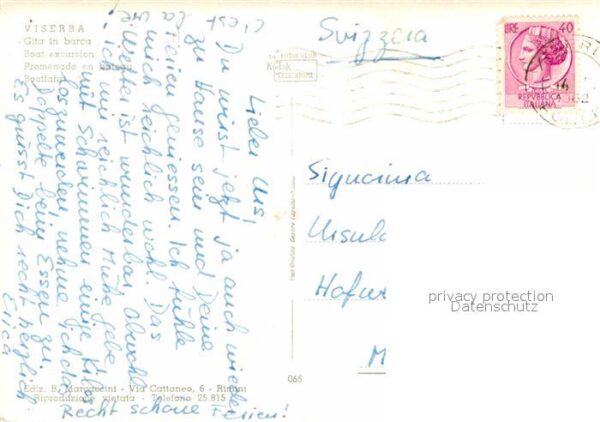 VISERBA
Gita in barca
Boat excursion
Promenade en bateau
Bootfahrt
Svizzera
LIRE 40
REPVBBLICA
ITALIANA
c'est
la vie
Lieber Urs!
Du wirst jetzt ja auch wieder
zu Hause sein und Deine
Ferien geniessen. Ich fühle
mich reichlich wohl. Das
Wetter ist wunderbar, obwohl
ich mir reichlich Mühe gebe
mit Schwimmen einige Kilos
loszuwerden, nehme ich das
Doppelte beim Essen zu
Es grüsst Dich recht herzlich
Erica
Recht schöne Ferien!
Signorina
Ursula
M
privacy protection
Datenschutz
065
Ediz. B. Marcaccini - Via Cattaneo, 6 - Rimini
Riproduzione vietata - Telefono 25.815